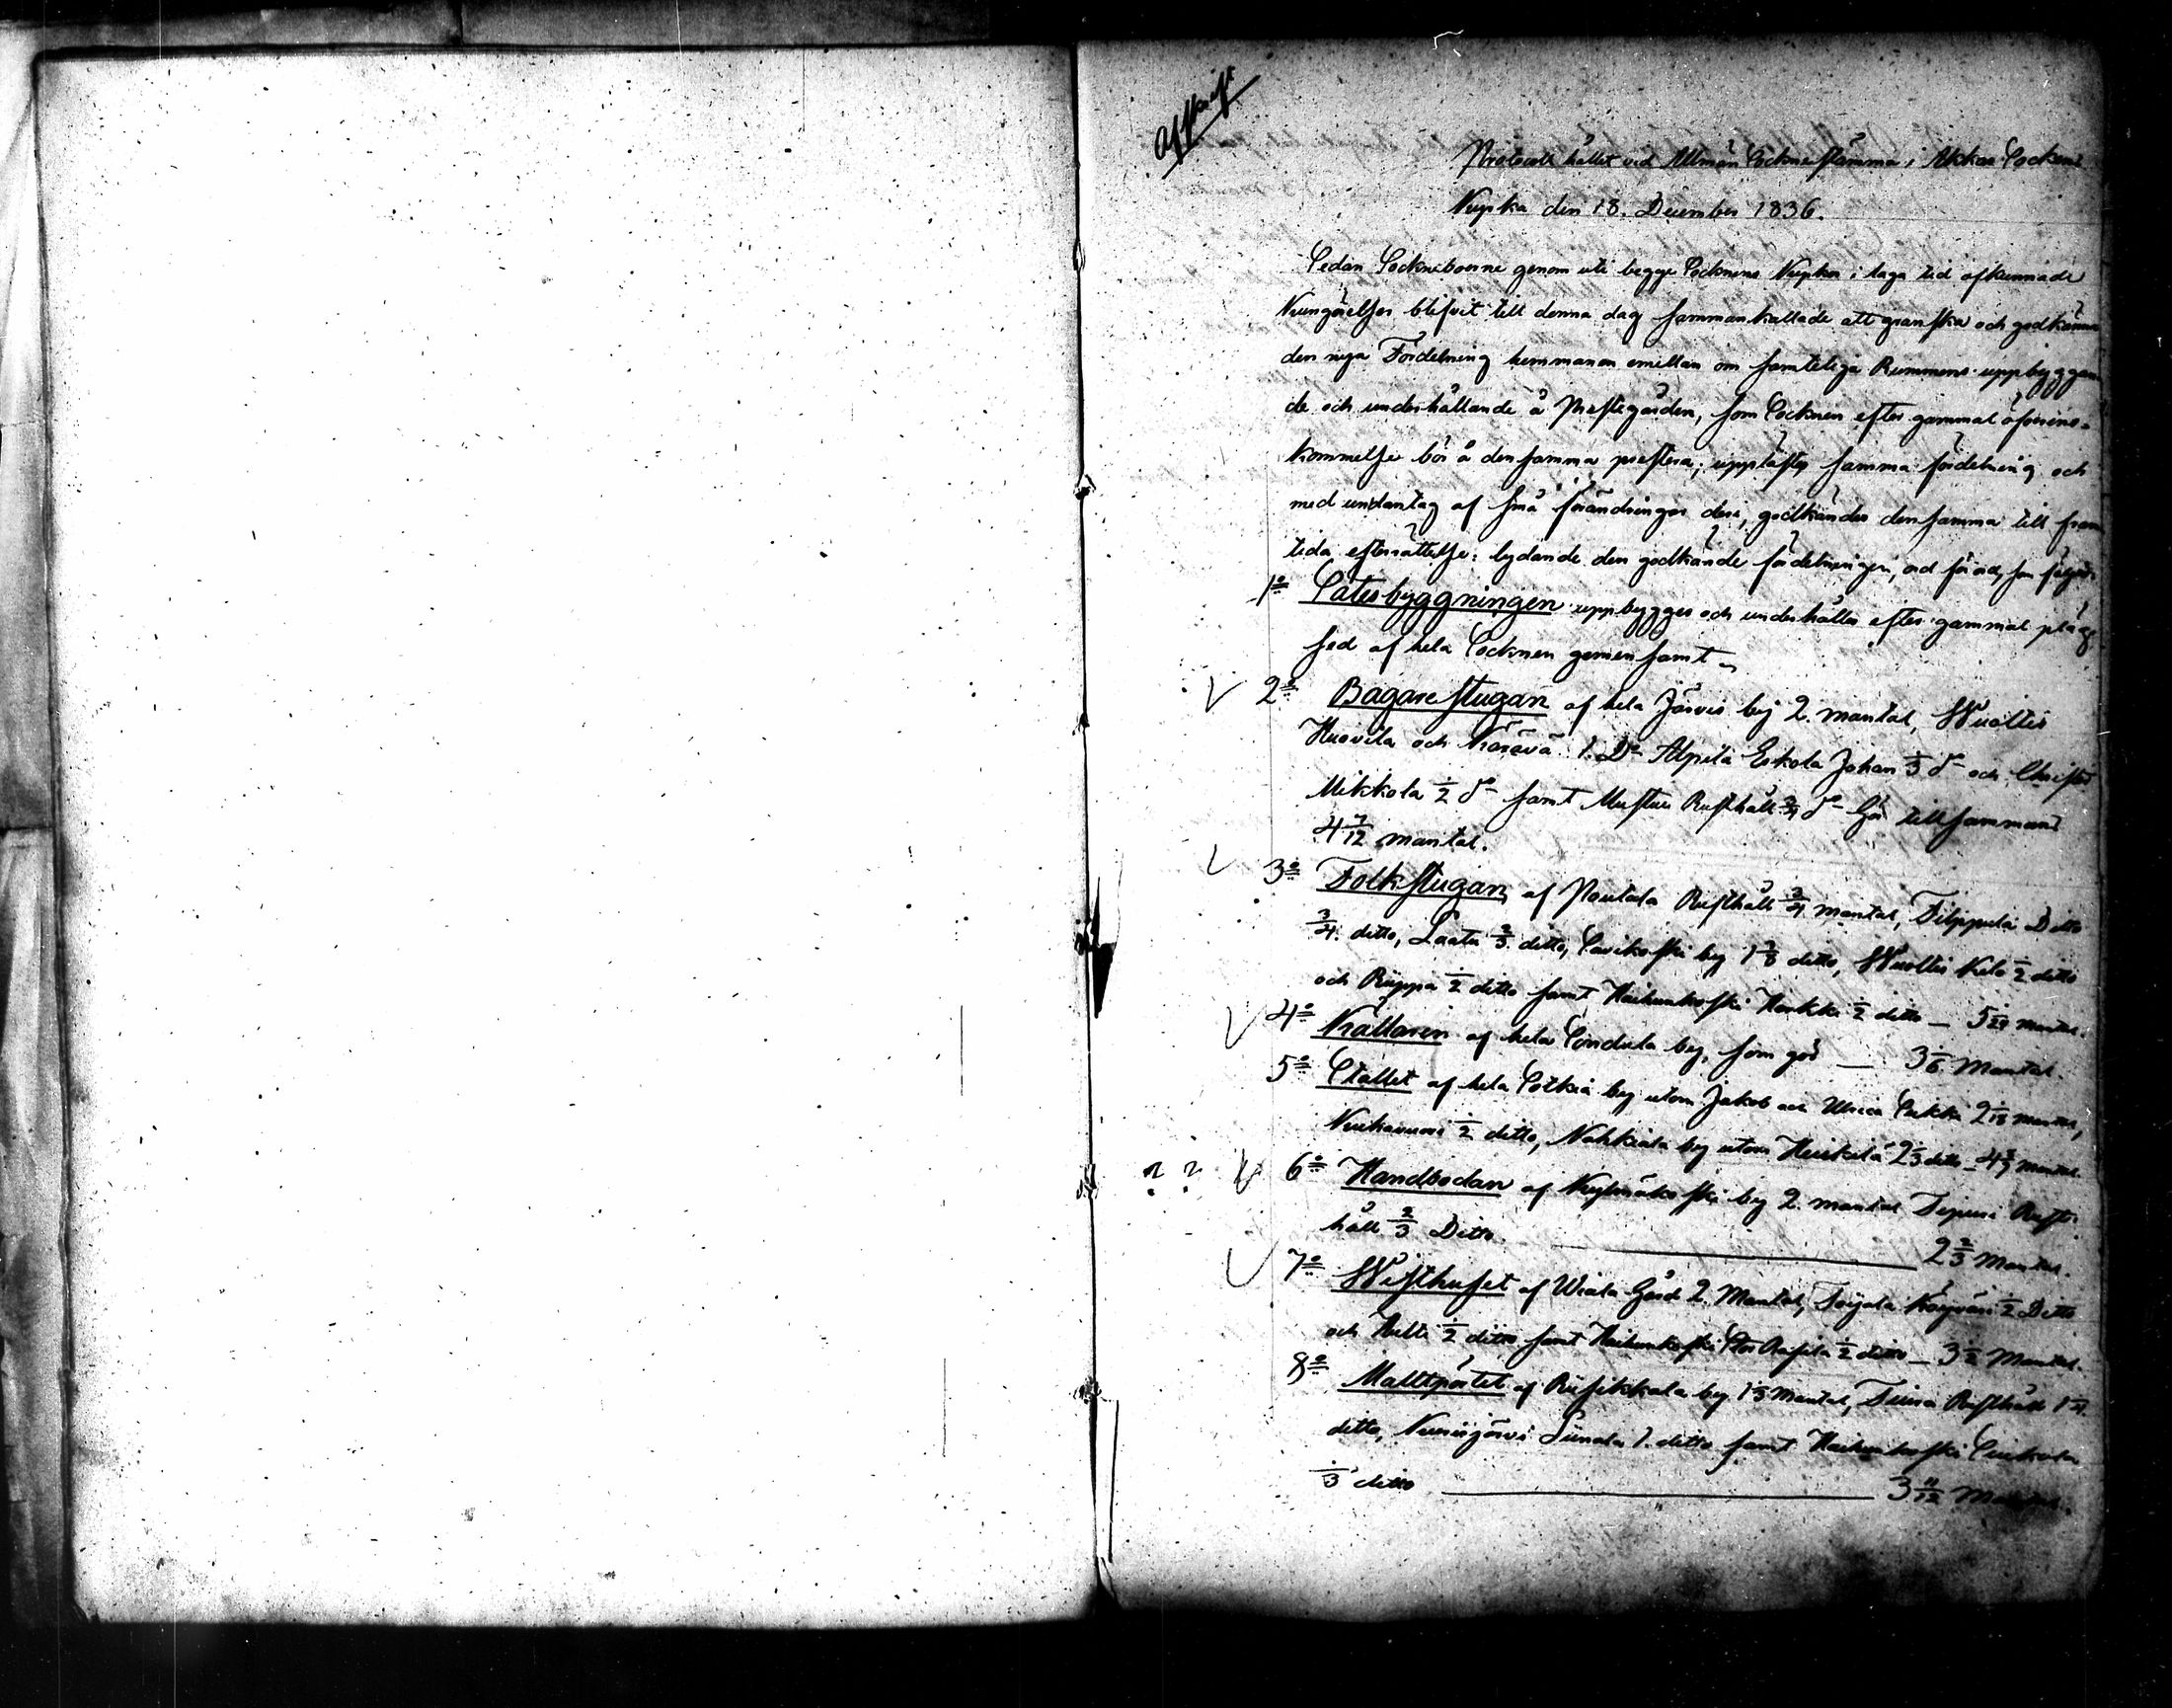 Afskrift
Protocoll hållet vid Allmän Sockne stämma i Akkas Sockens
Kyrka den 18. December 1836.
Sedan Sockneboerne genom uti begge Socknens Kyrkor i laga tid afkunnade
Kungörelser blifvit till denna dag sammankallade att granska och godkänna
den nya Fördelning hemmanen emellan om samteliga Rummens uppbyggan
de och underhållande å Prestegården, som Socknen efter gammal öfverens-
kommelse bör å densamma prestera; upplästes samma fördelning och
med undantag af små förändringar deri, godkändes densamma till fram
tida efterrättelse: lydande den godkände fördelningen, ord för ord, som följer:
1º Sätesbyggningen uppbygges och underhålles efter gammal pläg
sed af hela Socknen gemensamt
2º Bagarestugan af hela Järvis by 2. mantal, Wuoltis
Huovila och Kärävä 1. Dº Alpila Eskola Johan 1/3 dº och Christer
Mikkola 1/2 dº samt Rusthåll 3/4 dº Gör tillsammans
4 7/12 mantal.
3º Folkstugan af Pouttala Rusthåll 3/4 mantal, Filppula Ditto
3/4. ditto, Laatu 2/3 ditto, Savikoski by ditto, Wuoltis Kela 1/2 ditto
och Rüppa 1/2 ditto samt Haihunkoski Honkki 1/2 ditto — mantal.
4º Källaren af hela Sondula by, som gör — 3 1/6 Mantal.
5º Stallet af hela Sotkia by utom Jakob och Ulrica mantal,
1/2 ditto, Nahkiala by utom Heikkilä 2 1/3 ditto — mantal.
6º Handbodan af Kylmäkoski by 2. mantal Rust-
håll 2/3 Ditto. — 2 2/3 Mantal.
7º Wisthuset af Wiala Gård 2. Mantal, Toijala Köyväri 1/2 Ditto
och Hulli 1/2 ditto samt Haihunkoski Stor 1/2 ditto — 3 1/2 Mantal.
8º Malltpörtet af Rüsikkala by 1 1/3 Mantal, Rusthåll
ditto, Kurisjärvi Lünala 1. ditto samt Haihunkoski
1/3 ditto — 3 11/12 Mantal.